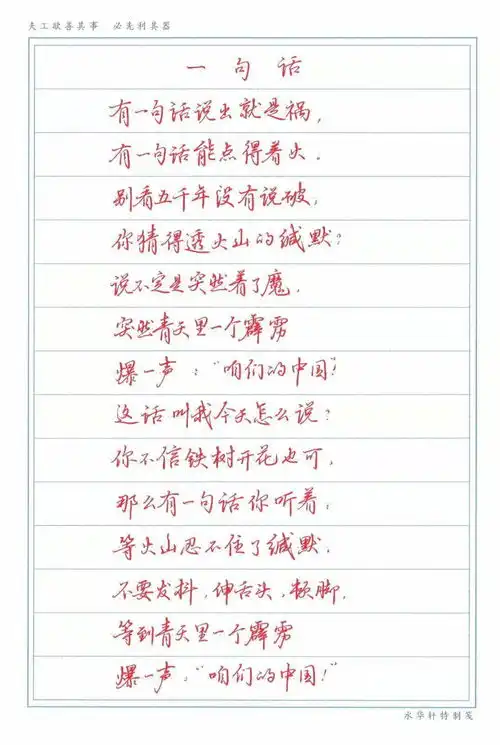 夫工欲善其事 必先利其器
一句话
有一句话说出就是祸,
有一句话能点得着火.
别看五千年没有说破,
你猜得透火山的缄默?
说不定是突然着了魔,
突然青天里一个霹雳
爆一声:“咱们的中国!”
这话叫我今天怎么说?
你不信铁树开花也可,
那么有一句话你听着:
等火山忍不住了缄默,
不要发抖,伸舌头,顿脚,
等到青天里一个霹雳
爆一声:“咱们的中国!”
永华轩特制笺